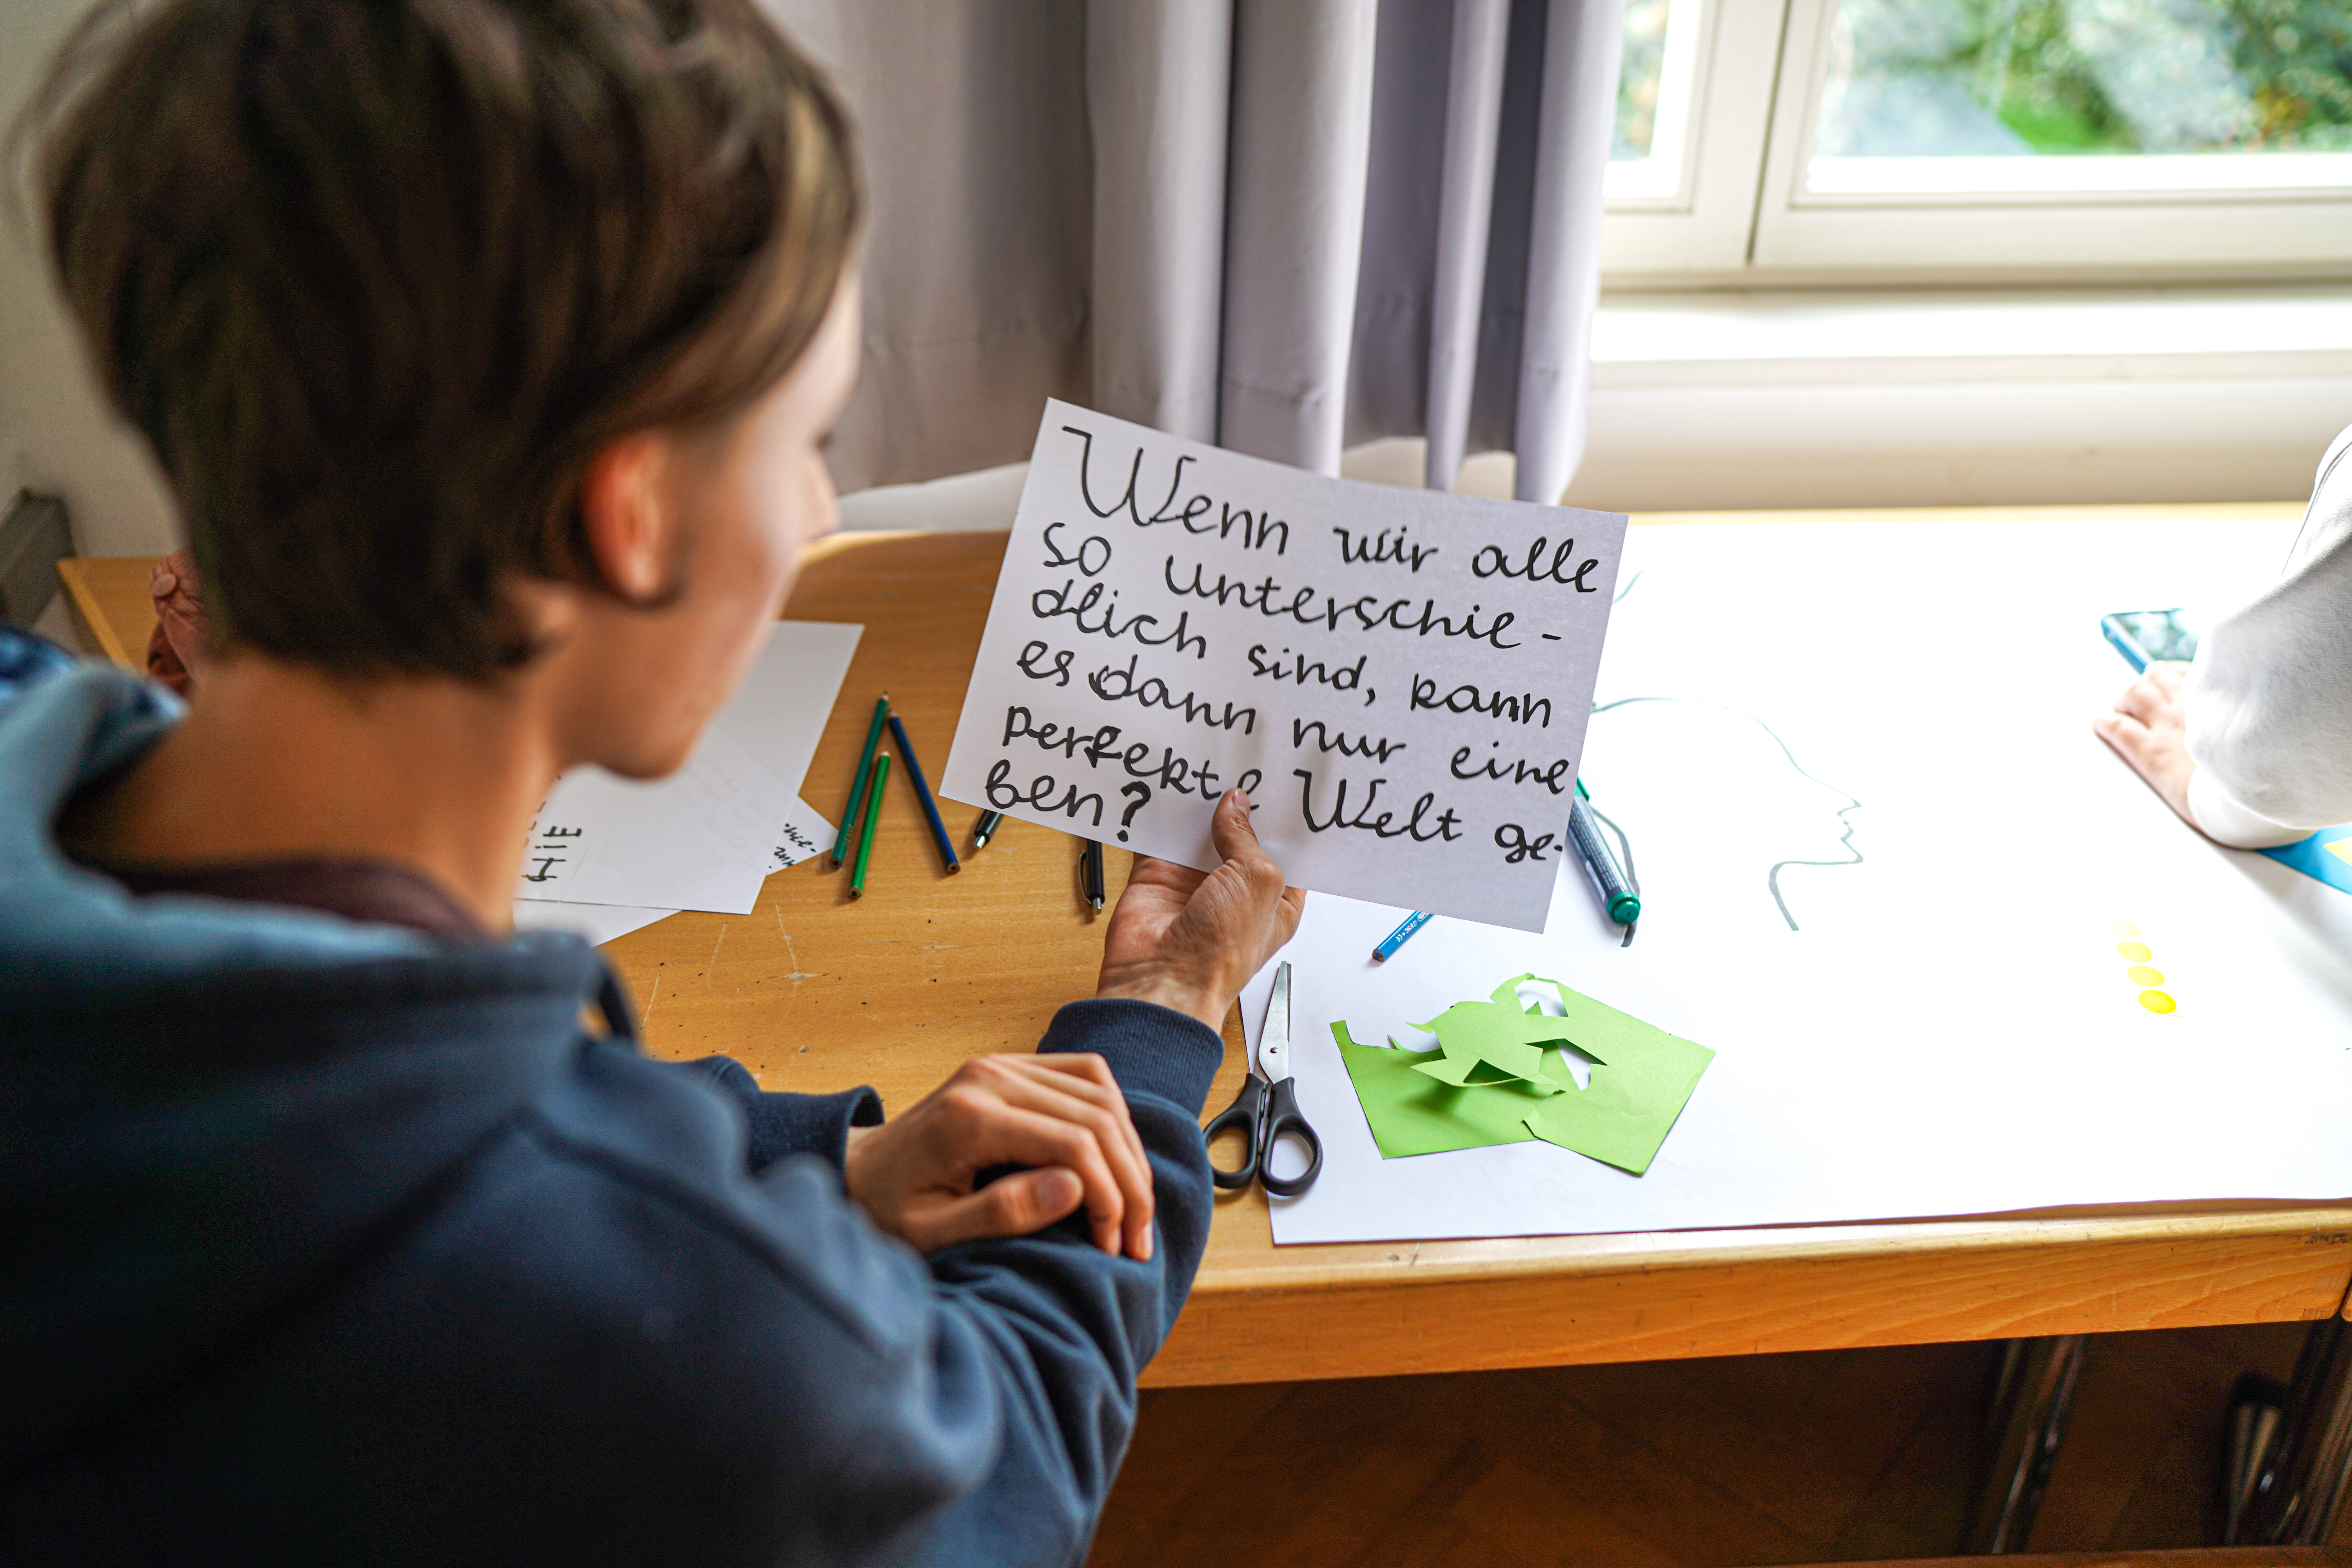 Wenn wir alle
so unterschie-
dlich sind, kann
es dann nur eine
perfekte Welt ge-
ben?
HIE